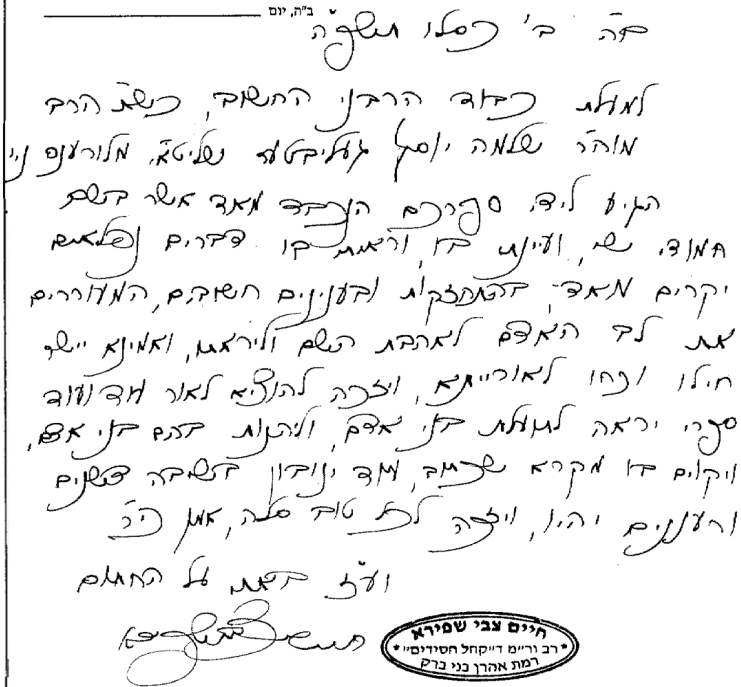 ב"ה, יום
בס"ה ב' כסלו תשפ"ה
למעלת כבוד הרבני החשוב, כש"ת הרב
מוה"ר שלמה יוסף געליבטער שליט"א, מלורענס נ"י
הגיע לידי ספרכם הנכבד מאד אשר בשם
חמודי שי, ועיינתי בו, וראיתי בו דברים נפלאים
יקרים מאד, בהתחזקות ובענינים חשובים, המעוררים
את לב האדם לאהבת השם וליראתו, ואמינא יישר
חילו וכחו לאורייתא, ויזכה להוציא לאור עוד ועוד
ספרי יראה לתועלת בני אדם, וליהנות בהם בני אדם,
ויקוים בו מקרא שכתוב, עוד ינובון בשיבה דשנים
ורעננים יהיו, ויזכה לכל טוב סלה, אמן כי"ר
ועז באתי על החתום
חיים צבי שפירא
חיים צבי שפירא
רב ור"מ ד"קהל חסידים"
רמת אהרן בני ברק